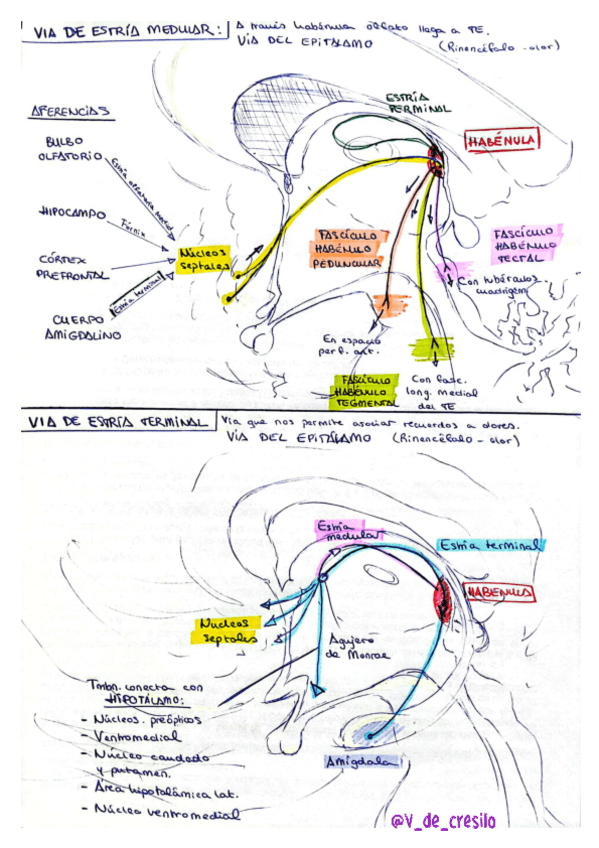 VIA DE ESTRÍA MEDULAR:
A través habénula olfato llega a TE.
VIA DEL EPITÁLAMO (Rinencéfalo - olor)
AFERENCIAS
BULBO
OLFATORIO
Estría olfatoria medial
HIPOCAMPO
Fórnix
CÓRTEX
PREFRONTAL
Estría terminal
CUERPO
AMIGDALINO
Núcleos
septales
ESTRÍA
TERMINAL
HABÉNULA
FASCÍCULO
HABÉNULO
PEDUNCULAR
FASCÍCULO
HABÉNULO
TECTAL
Con tubérculos
cuadrigém.
En espacio
perf. ant.
FASCÍCULO
HABÉNULO
TEGMENTAL
Con fasc.
long. medial
del TE
VIA DE ESTRÍA TERMINAL
Vía que nos permite asociar recuerdos a olores.
VIA DEL EPITÁLAMO (Rinencéfalo - olor)
Estría
medular
Estria terminal
HABENULA
Nucleos
septales
Agujero
de Monroe
Tmbn. conecta con
HIPOTÁLAMO:
- Núcleos. preópticos
- Ventromedial
- Núcleo caudado
y putamen.
- Área hipotalámica lat.
- Núcleo ventromedial
Amígdala
@v_de_cresilo